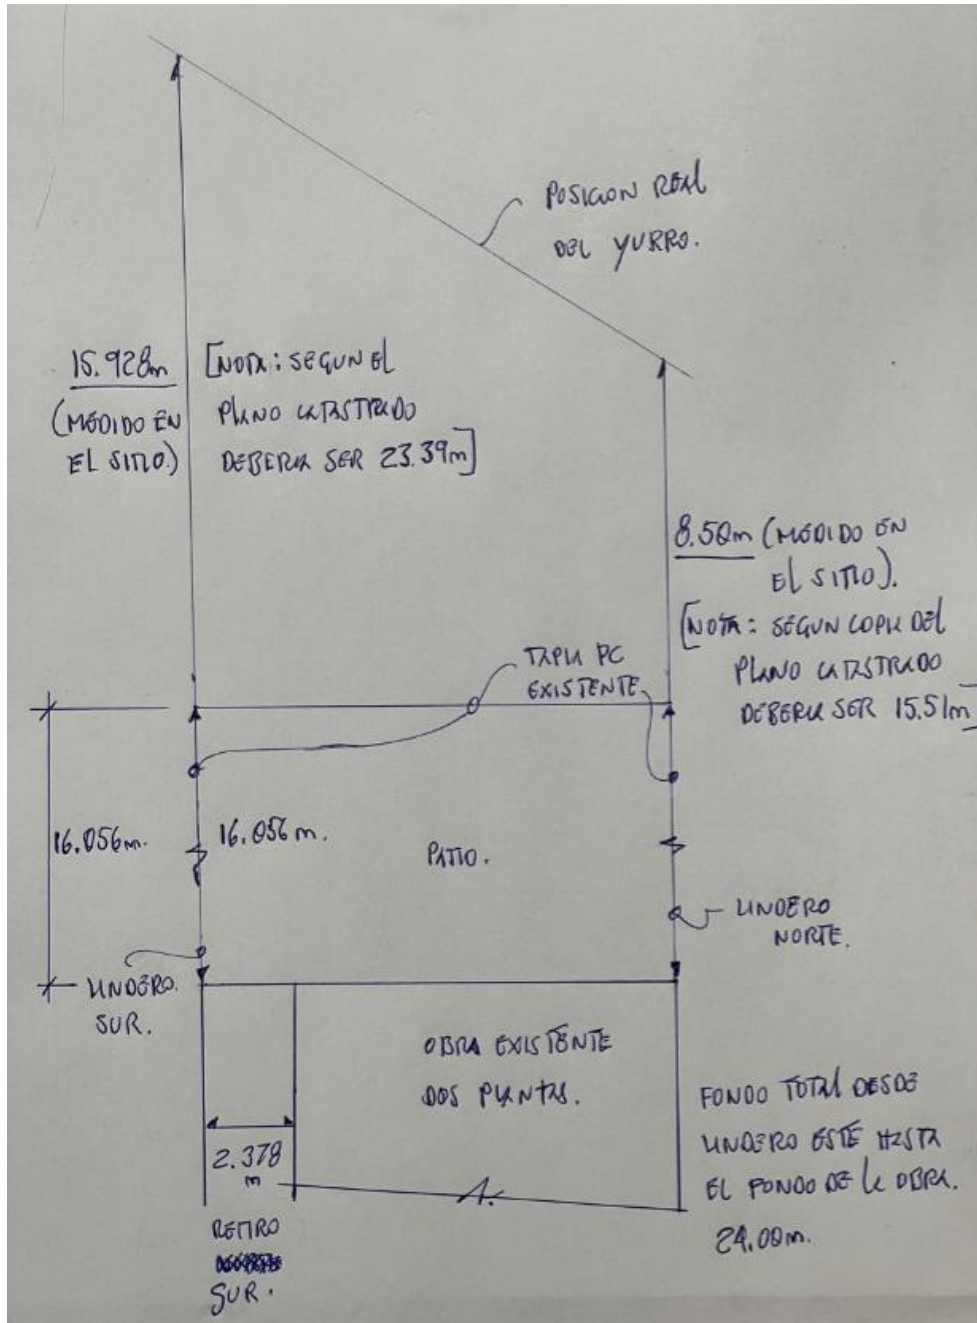 POSICION REAL
DEL YURRO.
15.928m
(MEDIDO EN
EL SITIO.)
[NOTA: SEGUN EL
PLANO CATASTRADO
DEBERIA SER 23.39m]
8.50m (MEDIDO EN
EL SITIO).
[NOTA: SEGUN COPIA DEL
PLANO CATASTRADO
DEBERIA SER 15.51m]
TAPIA PC
EXISTENTE.
16.056m.
16.056m.
PATIO.
LINDERO
NORTE.
LINDERO
SUR.
OBRA EXISTENTE
DOS PLANTAS.
2.378
m
RETIRO
SUR.
FONDO TOTAL DESDE
LINDERO ESTE HASTA
EL FONDO DE LA OBRA.
24.00m.